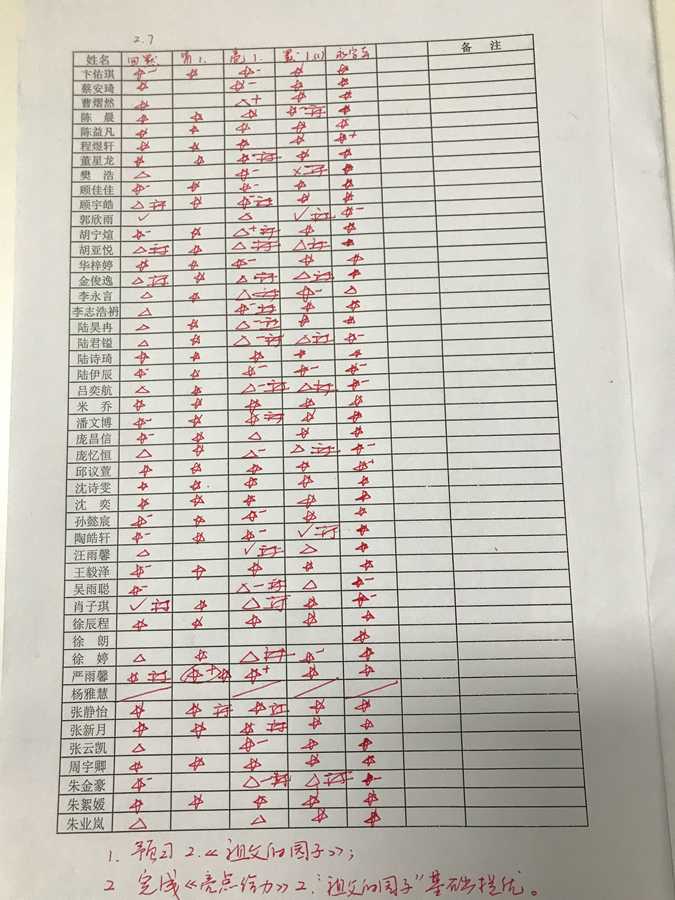 2.7
姓名 亮1. 备 注
卞佑琪 ☆- ☆ ☆- ☆ ☆-
蔡安琦 ☆ ☆- ☆ ☆
曹熠然 ☆ △+ ☆ ☆
陈 晨 ☆ ☆ ☆ ☆-订 ☆
陈益凡 ☆ ☆ ☆ ☆ ☆
程煜轩 ☆ ☆ ☆ ☆ ☆+
董星龙 ☆ ☆ ☆-订 ☆ ☆
樊 浩 △ ☆- ×订 ☆
顾佳佳 ☆- ☆ ☆- ☆ ☆
顾宇皓 △订 ☆ ☆订 ☆ ☆
郭欣雨 ✓ △ ✓订 ☆-
胡宁煊 ☆- ☆ △+订 ☆ ☆
胡亚悦 △订 ☆ △订 △订 ☆
华梓婷 ☆ ☆ ☆- ☆ ☆
金俊逸 △订 ☆ △订 △订 ☆
李永言 △ ☆ △-订 ☆- △
李志浩礽 △ ☆-订 ☆ ☆
陆昊冉 △ ☆ △-订 ☆ ☆
陆君镒 △ ☆ △-订 △订 ☆-
陆诗琦 ☆ ☆ ☆ ☆ ☆
陆伊辰 ☆ ☆ ☆- ☆- ☆-
吕奕航 △ ☆ △-订 △订 ☆
米 乔 ☆ ☆ ☆ ☆ ☆
潘文博 ☆- ☆ ☆订 ☆ ☆
庞昌信 ☆- ☆ △ ☆ ☆
庞忆恒 △ ☆ △- △订 ☆-
邱议萱 ☆ ☆ ☆ ☆ ☆
沈诗雯 ☆ ☆ ☆ ☆ ☆
沈 奕 ☆ ☆ ☆ ☆ ☆
孙懿宸 ☆- ☆ ☆- ☆ ☆
陶皓轩 ☆- ☆ ☆- ✓订 ☆
汪雨馨 △ ✓订 △ ☆
王毅泽 ☆- ☆ ☆ ☆ ☆
吴雨聪 ☆- ×-订 △ ☆-
肖子琪 ✓订 ☆ △订 ☆ ☆-
徐辰程 ☆ ☆ ☆ ☆ ☆
徐 朗 ☆
徐 婷 △ ☆ △订 ☆- ☆
严雨馨 ☆订 ☆+☆ ☆+ ☆ ☆
杨雅慧
张静怡 ☆ ☆订 ☆订 ☆ ☆
张新月 ☆ ☆ ☆订 ☆ ☆
张云凯 △ ☆- ☆ ☆
周宇卿 ☆ ☆ ☆ ☆ ☆
朱金豪 ☆- △-订 △订 ☆-
朱絮媛 ☆ ☆ ☆ ☆ ☆
朱业岚 △ △ ☆ ☆
1. 预习2.《祖父的园子》;
2 完成《亮点给力》2."祖父的园子"基础提优。